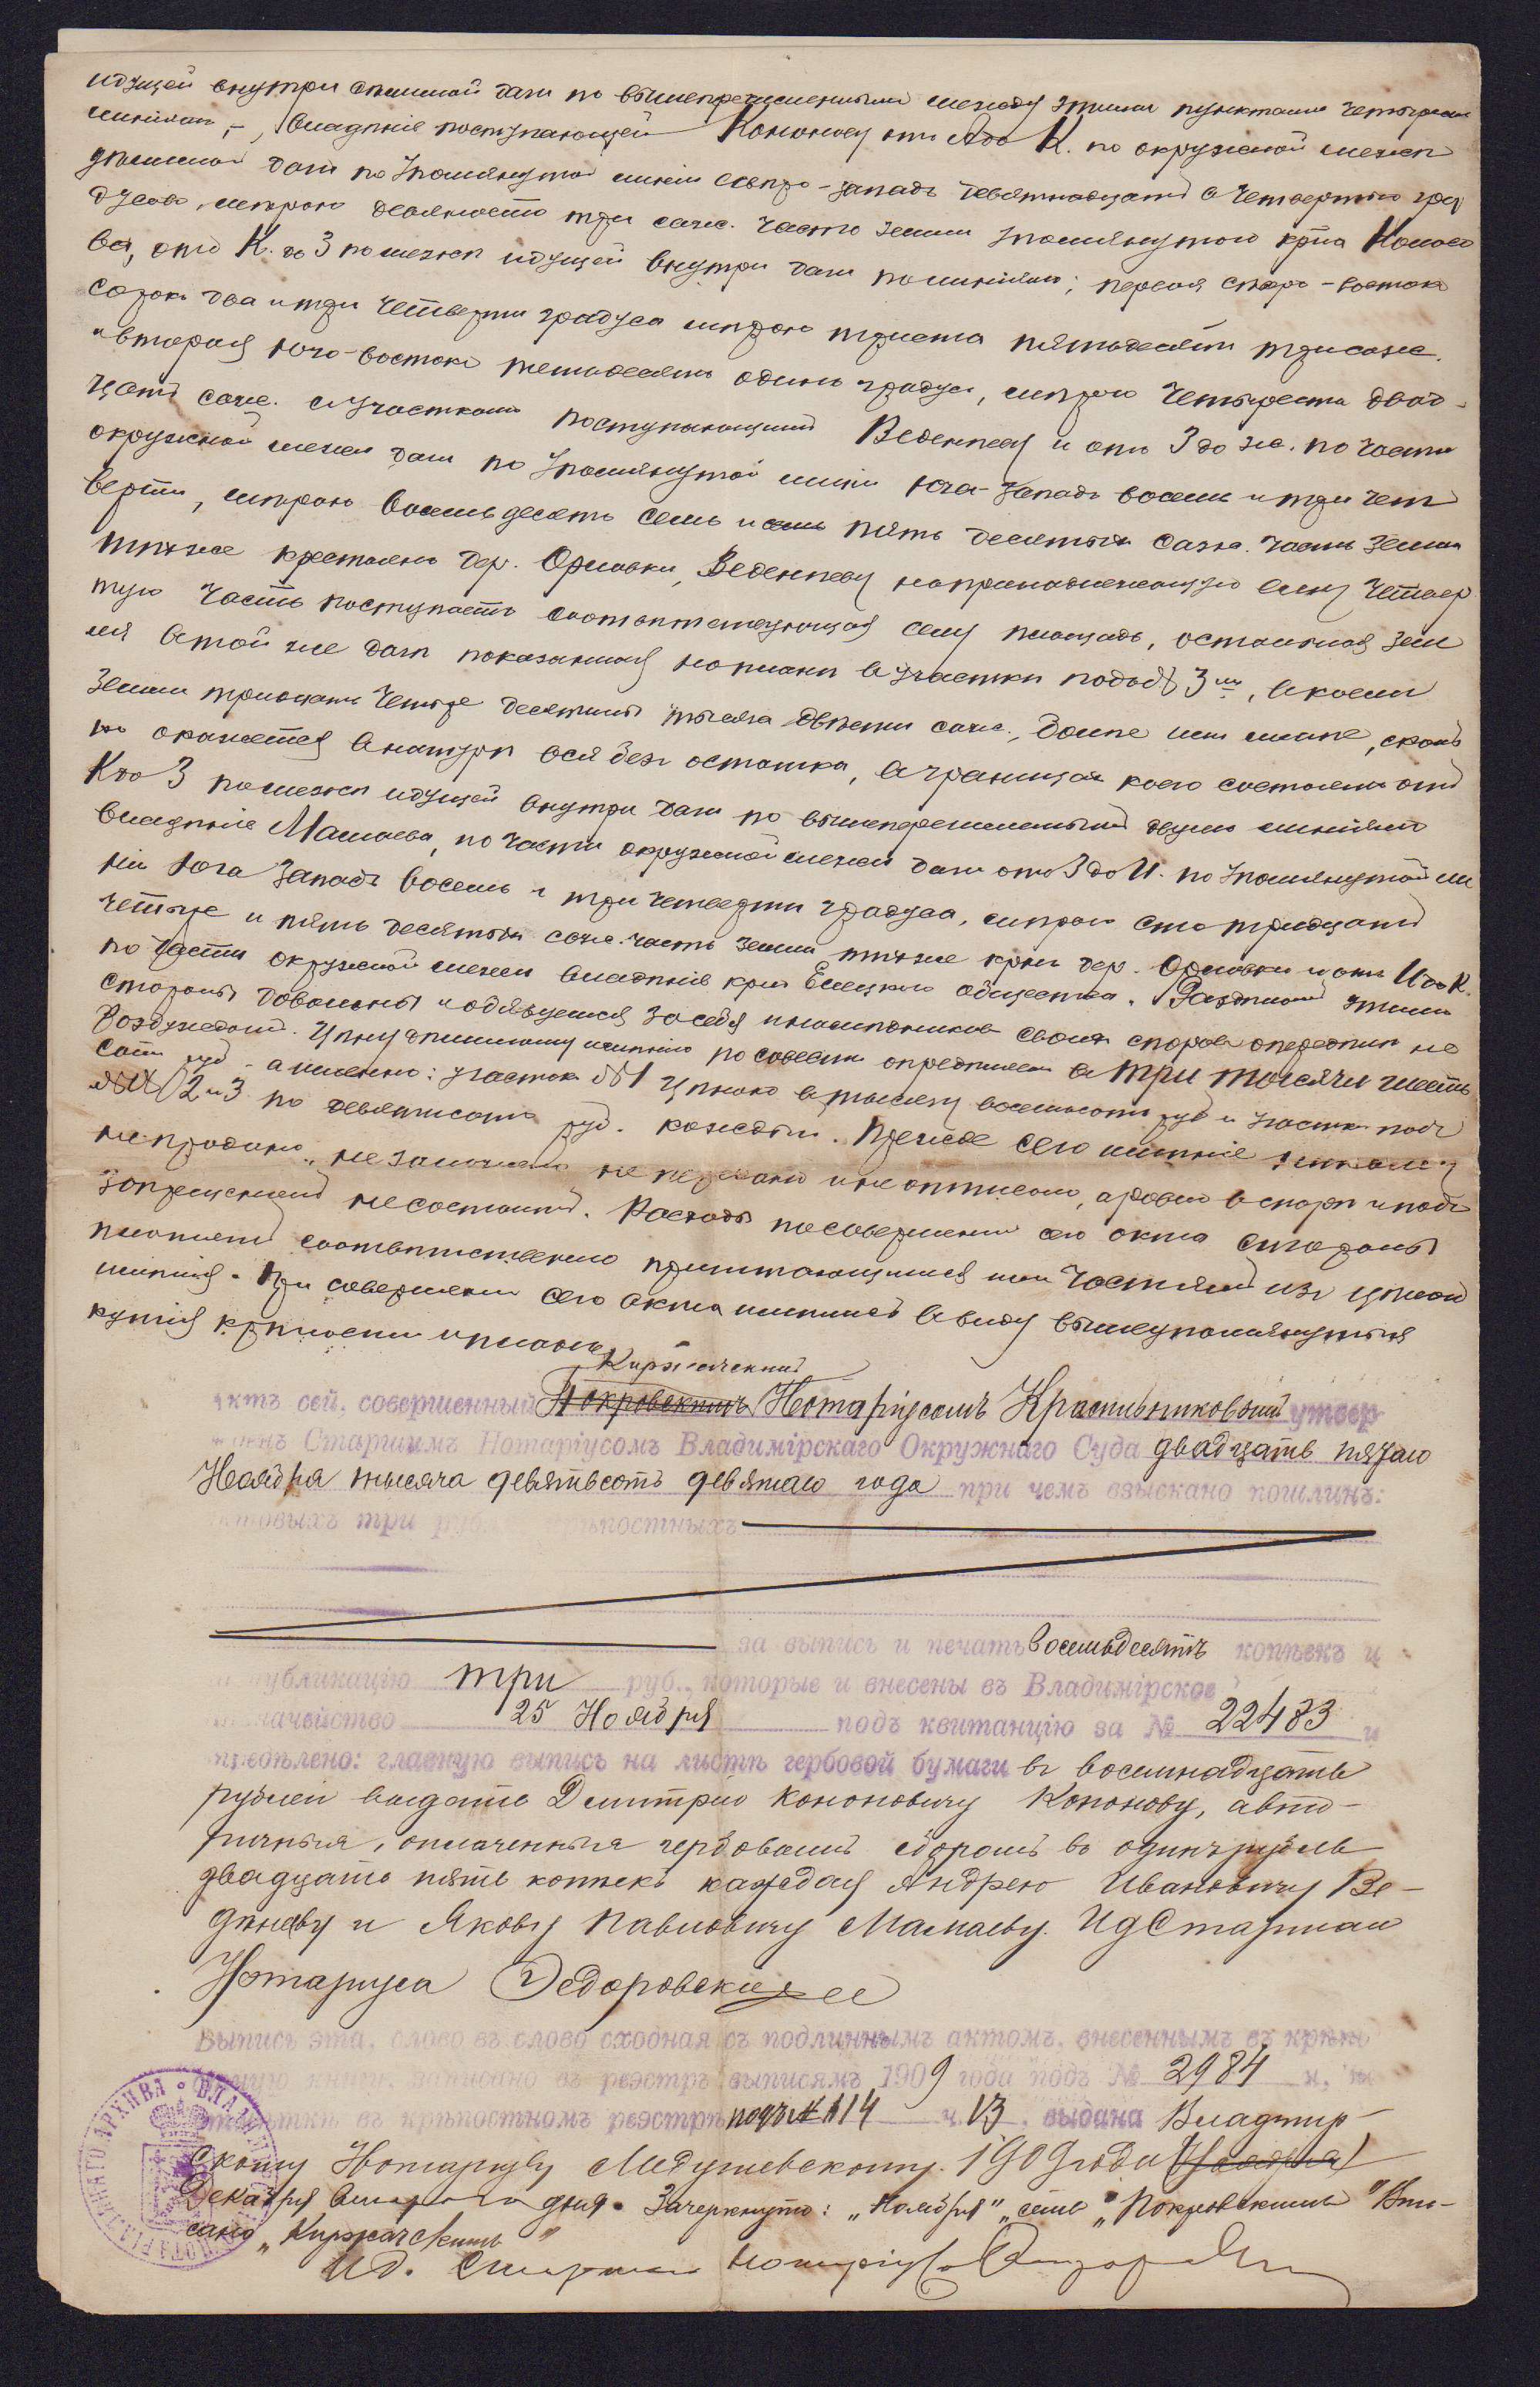 идущей внутри спанной дачи по вышепречисленнымъ между этими пунктами четыремъ
линiямъ, владѣнiе поступающей Кононову отъ А до К. по окружной межѣ
дачи по упомянутой линiи сѣверо-западъ девятнадцать четвертью гра
дусовъ, мѣрою девяносто три саж. часть земли упомянутого крна
ва, отъ К. до З по межѣ идущей внутри дачи по линiямъ; первая сѣверо-востокъ
сорокъ два и три четверти градуса мѣрою триста пятьдесятъ три саж.
и вторая юго-востокъ пятьдесятъ одинъ градусъ, мѣрою четыреста двад-
цать саж. съ участкомъ поступающимъ Веденѣеву и отъ З до И. по части
окружной межи дачи по упомянутой линiи юго-западъ восемь и три чет
верти, мѣрою восемьдесятъ семь и пять десятыхъ саж. часть земли
тѣхже крестьянъ дер. Орловки, Веденѣеву на принадлежащую ему четвер
тую часть поступаетъ соотвѣтствующая сему площадь, остальная зем
ля въ той же дачѣ показанная на планѣ въ участкѣ подъ № 3мъ, въ коемъ
земли тридцать четыре десятины тысяча двѣсти саж., болѣе или менѣе, сколь
ко окажется въ натурѣ вся безъ остатка, въ границахъ коего состоятъ отъ
К до З по межѣ идущей внутри дачи по вышеперечисленнымъ двумъ линiямъ
владѣнiе Мамаева, по части окружной межи дачи отъ З до И. по упомянутой ли
нiи юго западъ восемь и три четверти градуса, мѣрою сто тридцать
четыре и пять десятыхъ саж. часть земли тѣхже крнъ дер. Орловки и отъ И до К.
по части окружной межи владѣнiе крнъ Елецкаго общества. Раздѣломъ этимъ
стороны довольны и обязуемся за себя и наслѣдниковъ своихъ споровъ о передѣлѣ не
возбуждать. Цѣну дѣлимому имѣнiю по совѣсти опредѣляемъ въ три тысячи шесть
сотъ руб. а именно: участокъ № 1 цѣною въ тысячу восемьсотъ руб и участки подъ
№№ 2 и 3 по девятисотъ руб. каждый. Прежде сего имѣнiе никому
не продано, не заложено не передано и не отписано, а равно въ спорѣ и подъ
запрещенiемъ не состоитъ. Расходы по совершенiю сего акта стороны
платятъ соотвѣтственно причитающимся имъ частямъ изъ цѣнной
имѣнiя. При совершенiи сего акта имѣлись въ виду вышеупомянутыя
купчiя крѣпости и планъ.
Киржачскимъ
Актъ сей, совершенный Покровскимъ Нотарiусомъ Красильниковымъ утвер-
жденъ Старшимъ Нотарiусомъ Владимiрскаго Окружнаго Суда двадцать пятаго
Ноября тысяча девятьсотъ девятаго года при чемъ взыскано пошлинъ:
актовыхъ три рубля крѣпостныхъ
за выпись и печать восемьдесятъ копѣекъ и
за публикацiю три руб., которые и внесены въ Владимiрское
Казначейство 25 Ноября подъ квитанцiю за № 22483 и
опредѣлено: главную выпись на листѣ гербовой бумаги въ восемнадцать
рублей выдать Дмитрiю Кононовичу Кононову, а вто-
ричныя, оплаченныя гербовымъ сборомъ въ одинъ рубль
двадцать пять копѣекъ каждая Андрею Ивановичу Ве-
денѣеву и Якову Павловичу Мамаеву. И д Старшаго
Нотарiуса Ѳедоровскiй
Выпись эта, слово въ слово сходная съ подлиннымъ актомъ, внесеннымъ въ крѣпо
стную книгу, записана въ реэстръ выписямъ 1909 года подъ № 2984 и, по
отмѣткѣ въ крѣпостномъ реэстрѣ подъ № 114 ч. 13, выдана Владимiр-
скому Нотарiусу Медушевскому. 1909 года Ноября
Декабря второго дня. Зачеркнуто: „Ноября" „семь" „Покровскимъ" Впи-
сано „Киржачскимъ"
И д. Старшаго Нотарiуса